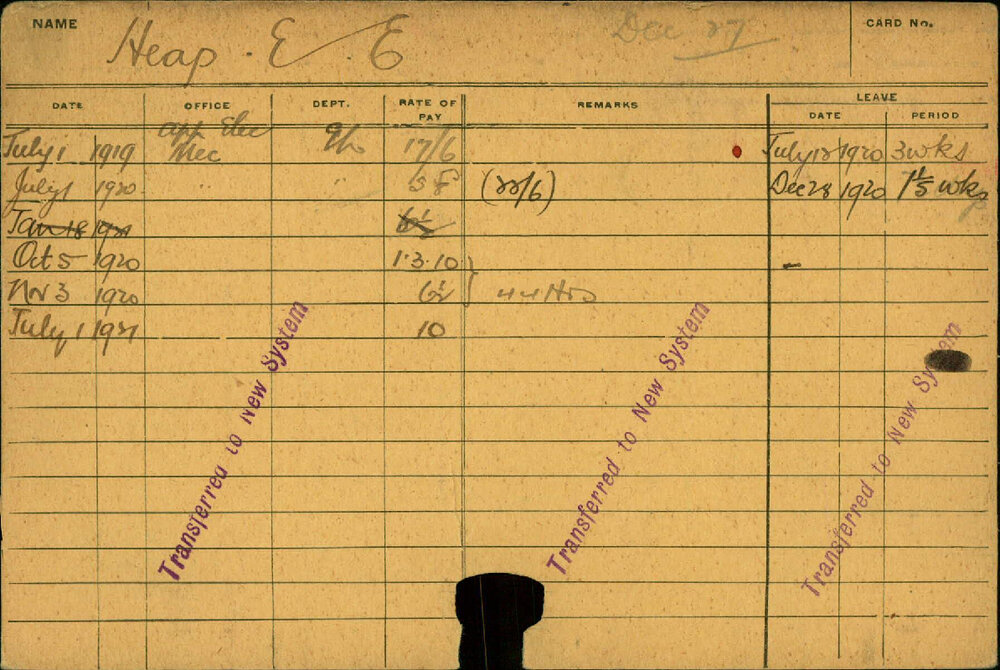 NAME Heap. E E Dec 27 CARD No.
DATE OFFICE DEPT. RATE OF PAY REMARKS LEAVE
DATE PERIOD
July 1 1919 App Elec Mec 17/6 July 12 1920 3 wks
July 1 1920 " " (22/6) Dec 28 1920 1 1/5 wks
Jan 18 1921 6½
Oct 5 1920 1.3.10
Nov 3 1920 6½ 44 Hrs
July 1 1921 10
Transferred to New System
Transferred to New System
Transferred to New System